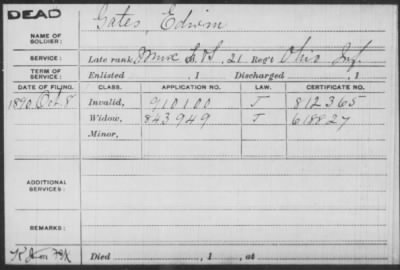 DEAD
Gates, Edwin
NAME OF SOLDIER:
SERVICE: Late rank, , 21 Reg't Ohio Inf.
TERM OF SERVICE: Enlisted , 1 Discharged , 1
DATE OF FILING. CLASS. APPLICATION NO. LAW. CERTIFICATE NO.
1890 Oct. 8 Invalid, 910100 J 812365
Widow, 843949 J 618827
Minor,
ADDITIONAL SERVICES:
REMARKS:
Died , 1 , at